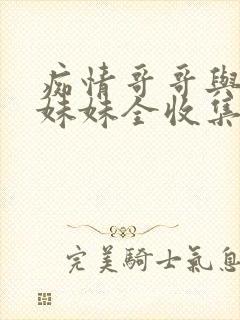 痴情哥哥與
妹妹全收集
完美騎士氣息